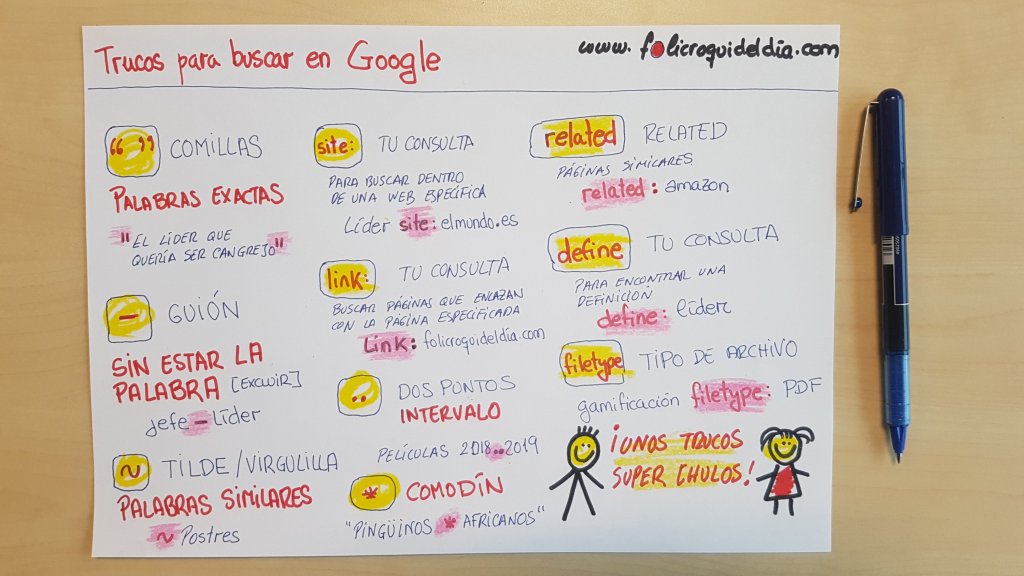 Trucos para buscar en Google
www.folicroquideldia.com
“ ” COMILLAS
PALABRAS EXACTAS
"EL LÍDER QUE
QUERÍA SER CANGREJO"
- GUIÓN
SIN ESTAR LA
PALABRA [EXCLUIR]
jefe - Líder
~ TILDE/VIRGULILLA
PALABRAS SIMILARES
~ Postres
site: TU CONSULTA
PARA BUSCAR DENTRO
DE UNA WEB ESPECÍFICA
Líder site: elmundo.es
link: TU CONSULTA
BUSCAR PÁGINAS QUE ENLAZAN
CON LA PÁGINA ESPECIFICADA
Link: folicroquideldia.com
.. DOS PUNTOS
INTERVALO
PELÍCULAS 2018..2019
* COMODÍN
"PINGÜINOS * AFRICANOS"
related RELATED
PÁGINAS SIMILARES
related: amazon
define TU CONSULTA
PARA ENCONTRAR UNA
DEFINICIÓN
define: líder
filetype TIPO DE ARCHIVO
gamificación filetype: PDF
¡UNOS TRUCOS
SUPER CHULOS!